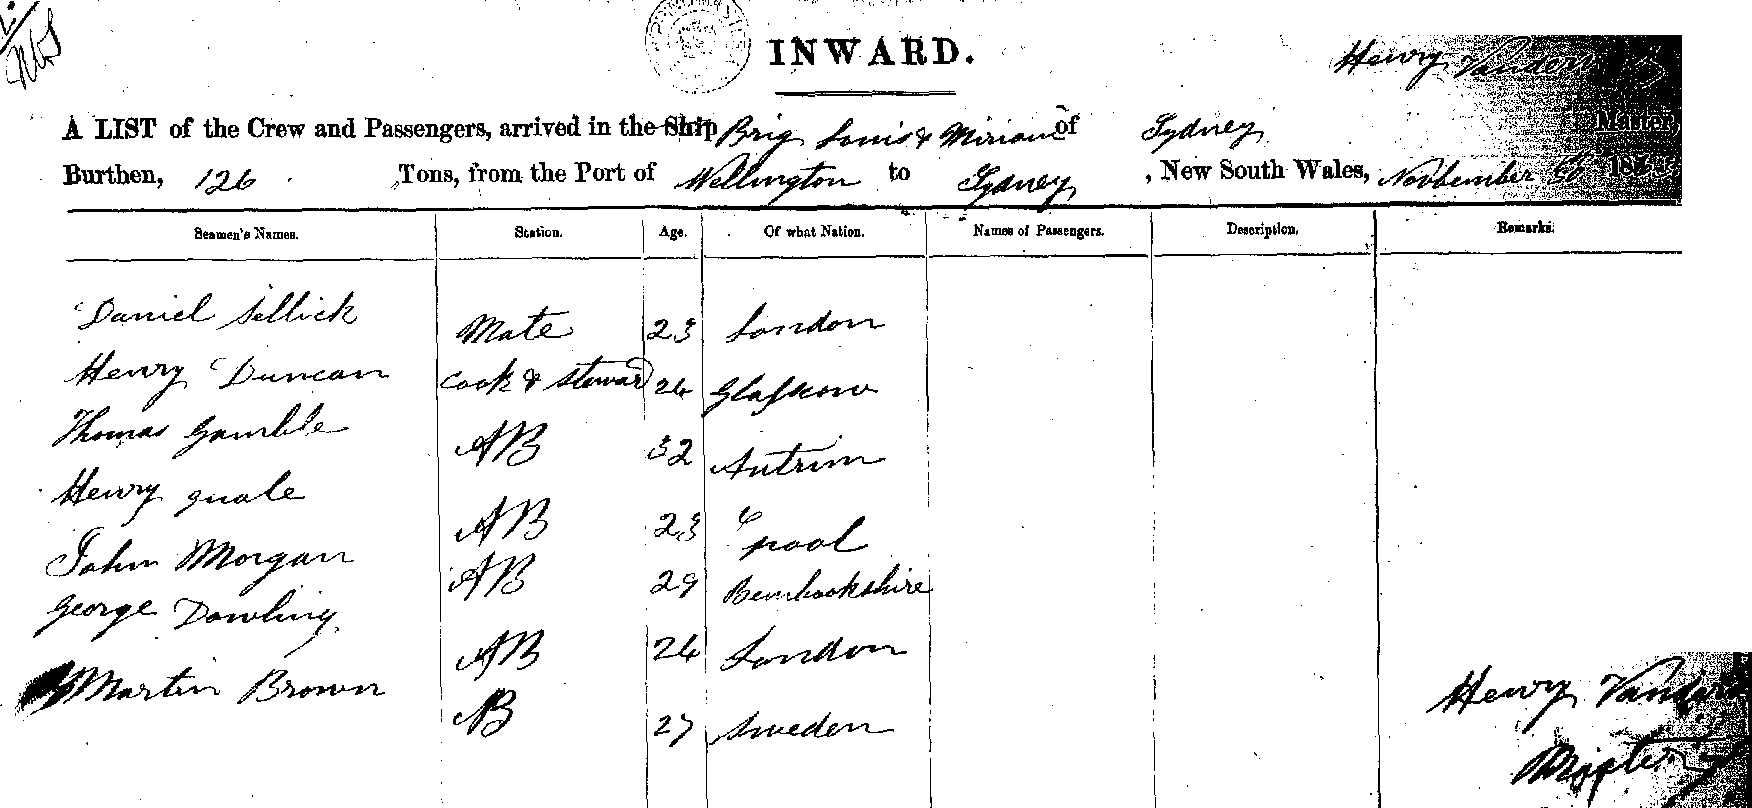 INWARD.
Henry
A LIST of the Crew and Passengers, arrived in the Ship Brig Louis & Miriam of Sydney Master,
Burthen, 126 Tons, from the Port of Wellington to Sydney, New South Wales, Novbember 18
Seamen's Names. Station. Age. Of what Nation. Names of Passengers. Description. Remarks.
Daniel Sellick Mate 23 London
Henry Duncan Cook & Steward 24 Glasskow
Thomas Gamble AB 32 Antrim
Henry Quale AB 23 pool
John Morgan AB 29 Bembookshire
George Dowling AB 24 London
Martin Brown AB 27 Sweden
Henry
Master